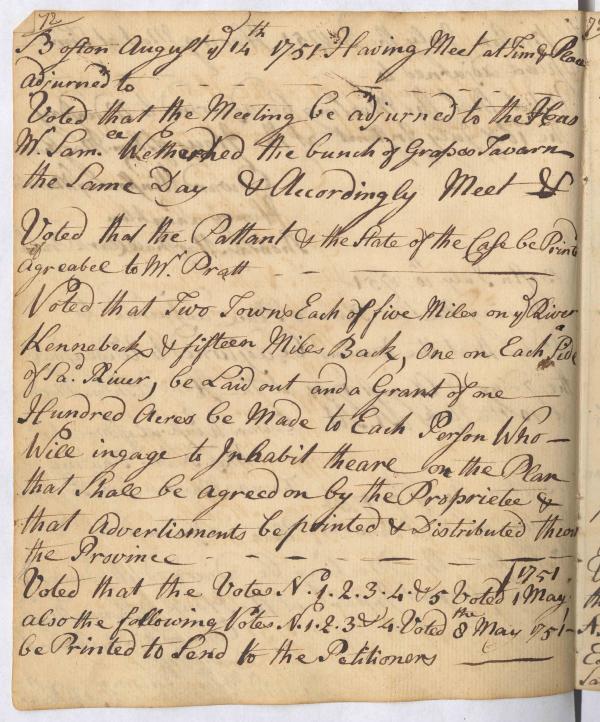 72
Boston August ye 14th 1751 Having Meet at Time & Place
adjurned to
Voted that the Meeting be adjurned to the Hous
Mr. Sam.ll Wetherhed the bunch of Grapes Tavarn
the Same Day & Accordingly Meet &
Voted that the Pattant & the State of the Case be Printd
agreabel to Mr. Pratt
Voted that Two Towns Each of five Miles on ye River
Kennebeck & fifteen Miles Back, one on Each Side
of Sa.d River, be Laid out and a Grant of one
Hundred Acres be Made to Each Person Who
Will ingage to Inhabit theare on the Plan
that Shall be agreed on by the Proprietee &
that Advertisments be printed & Distributed throu
the Province
Voted that the Votes No. 1. 2. 3. 4. & 5 Voted 1 May 1751
also the following Votes No. 1. 2. 3 & 4 Voted the 8 May 1751
be Printed to Send to the Petitioners